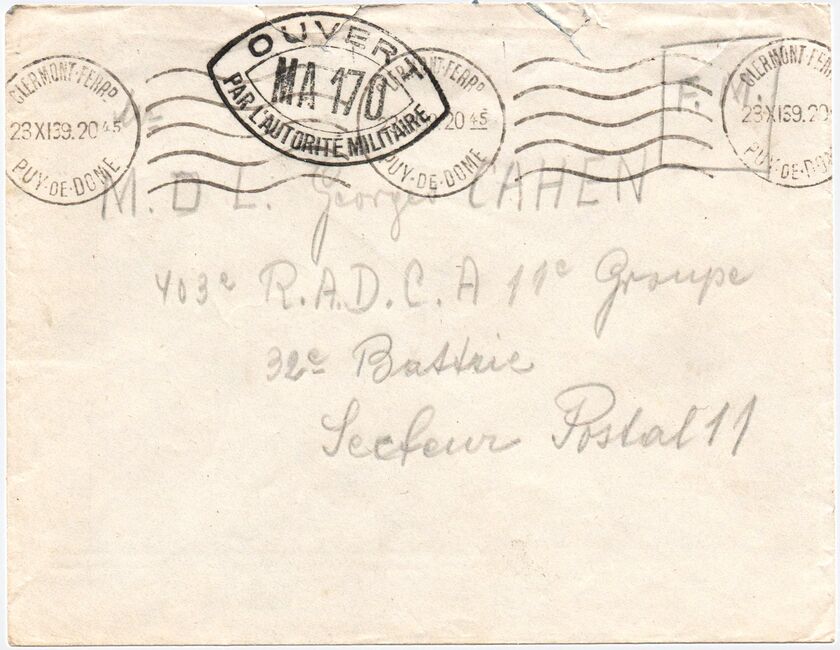 OUVERT
MA 170
PAR L'AUTORITÉ MILITAIRE
CLERMONT-FERRD
23 XI 39. 20 45
PUY-DE-DOME
CLERMONT-FERRD
20 45
PUY-DE-DOME
CLERMONT-FERRD
23 XI 39. 20 45
PUY-DE-DOME
F. M.
M. D L. Georges CAHEN
403e R.A.D.C.A 11e Groupe
32e Battrie
Secteur Postal 11